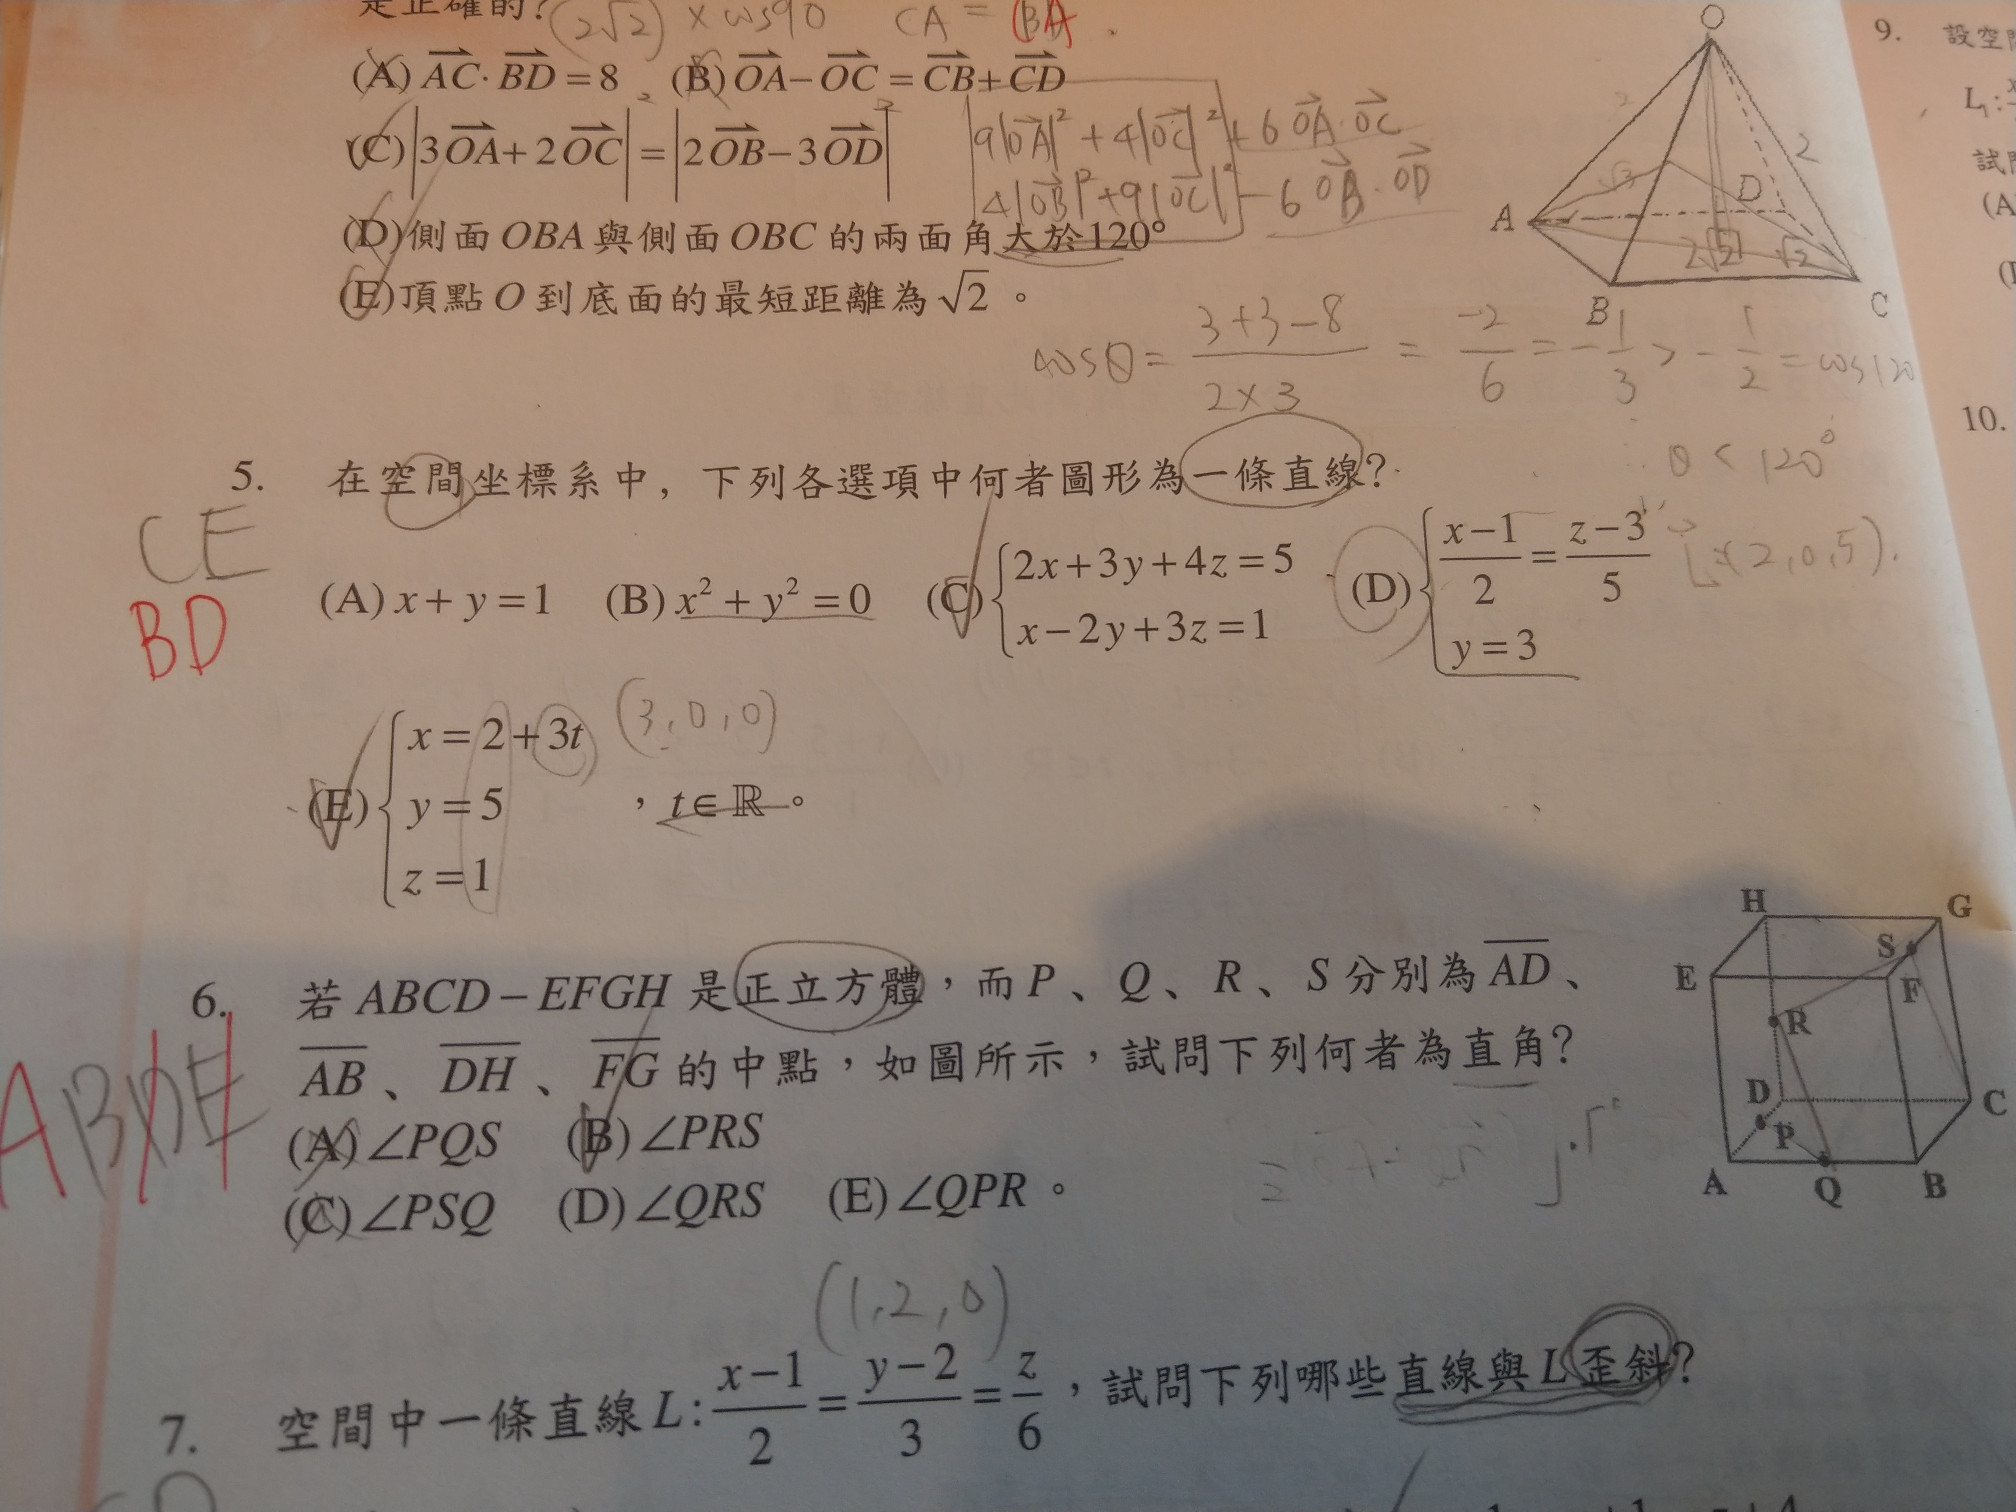 是正確的?(2√2) × cos90 CA = (BA)
(A) AC·BD = 8 (B) OA − OC = CB + CD
(C) |3OA + 2OC|² = |2OB − 3OD|² 9|OA|² + 4|OC|² + 6 OA·OC
4|OB|² + 9|OC|² − 6 OB·OD
(D)側面OBA與側面OBC的兩面角大於120°
(E)頂點O到底面的最短距離為√2。
cosθ = (3+3−8)/(2×3) = −2/6 = −1/3 > −1/2 = cos120
θ < 120°
O
2
A
D
√3
2√2
√2
B
C
9. 設空
L₁:
試
(A
10.
5. 在空間坐標系中,下列各選項中何者圖形為一條直線?
CE
BD
(A) x + y = 1 (B) x² + y² = 0 (C) { 2x + 3y + 4z = 5
x − 2y + 3z = 1
(D) { (x−1)/2 = (z−3)/5
y = 3
(2,0,5).
(E) { x = 2 + 3t (3,0,0)
y = 5 ,t∈ℝ。
z = 1
6. 若ABCD−EFGH是正立方體,而P、Q、R、S分別為AD、
AB、DH、FG的中點,如圖所示,試問下列何者為直角?
ABDE
(A)∠PQS (B)∠PRS
(C)∠PSQ (D)∠QRS (E)∠QPR。
H
G
S
E
F
R
D
C
P
A
Q
B
(1,2,0)
7. 空間中一條直線L: (x−1)/2 = (y−2)/3 = z/6,試問下列哪些直線與L歪斜?